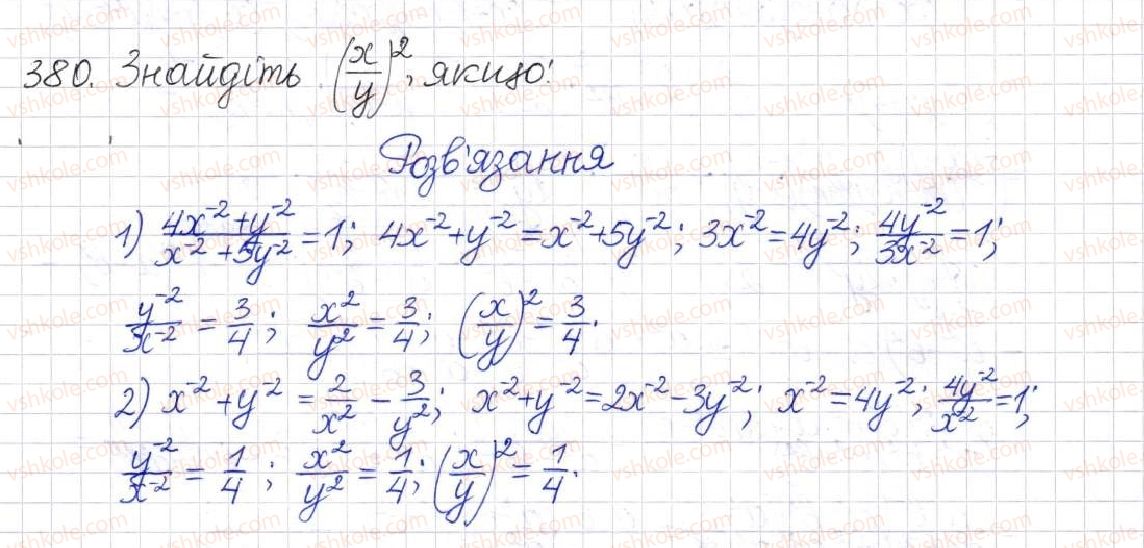 380. Знайдіть (x/y)², якщо:
Розв'язання
1) (4x⁻² + y⁻²)/(x⁻² + 5y⁻²) = 1; 4x⁻² + y⁻² = x⁻² + 5y⁻²; 3x⁻² = 4y⁻²; 4y⁻²/3x⁻² = 1;
y⁻²/x⁻² = 3/4; x²/y² = 3/4; (x/y)² = 3/4.
2) x⁻² + y⁻² = 2/x² − 3/y²; x⁻² + y⁻² = 2x⁻² − 3y⁻²; x⁻² = 4y⁻²; 4y⁻²/x⁻² = 1;
y⁻²/x⁻² = 1/4; x²/y² = 1/4; (x/y)² = 1/4.
vshkole.com